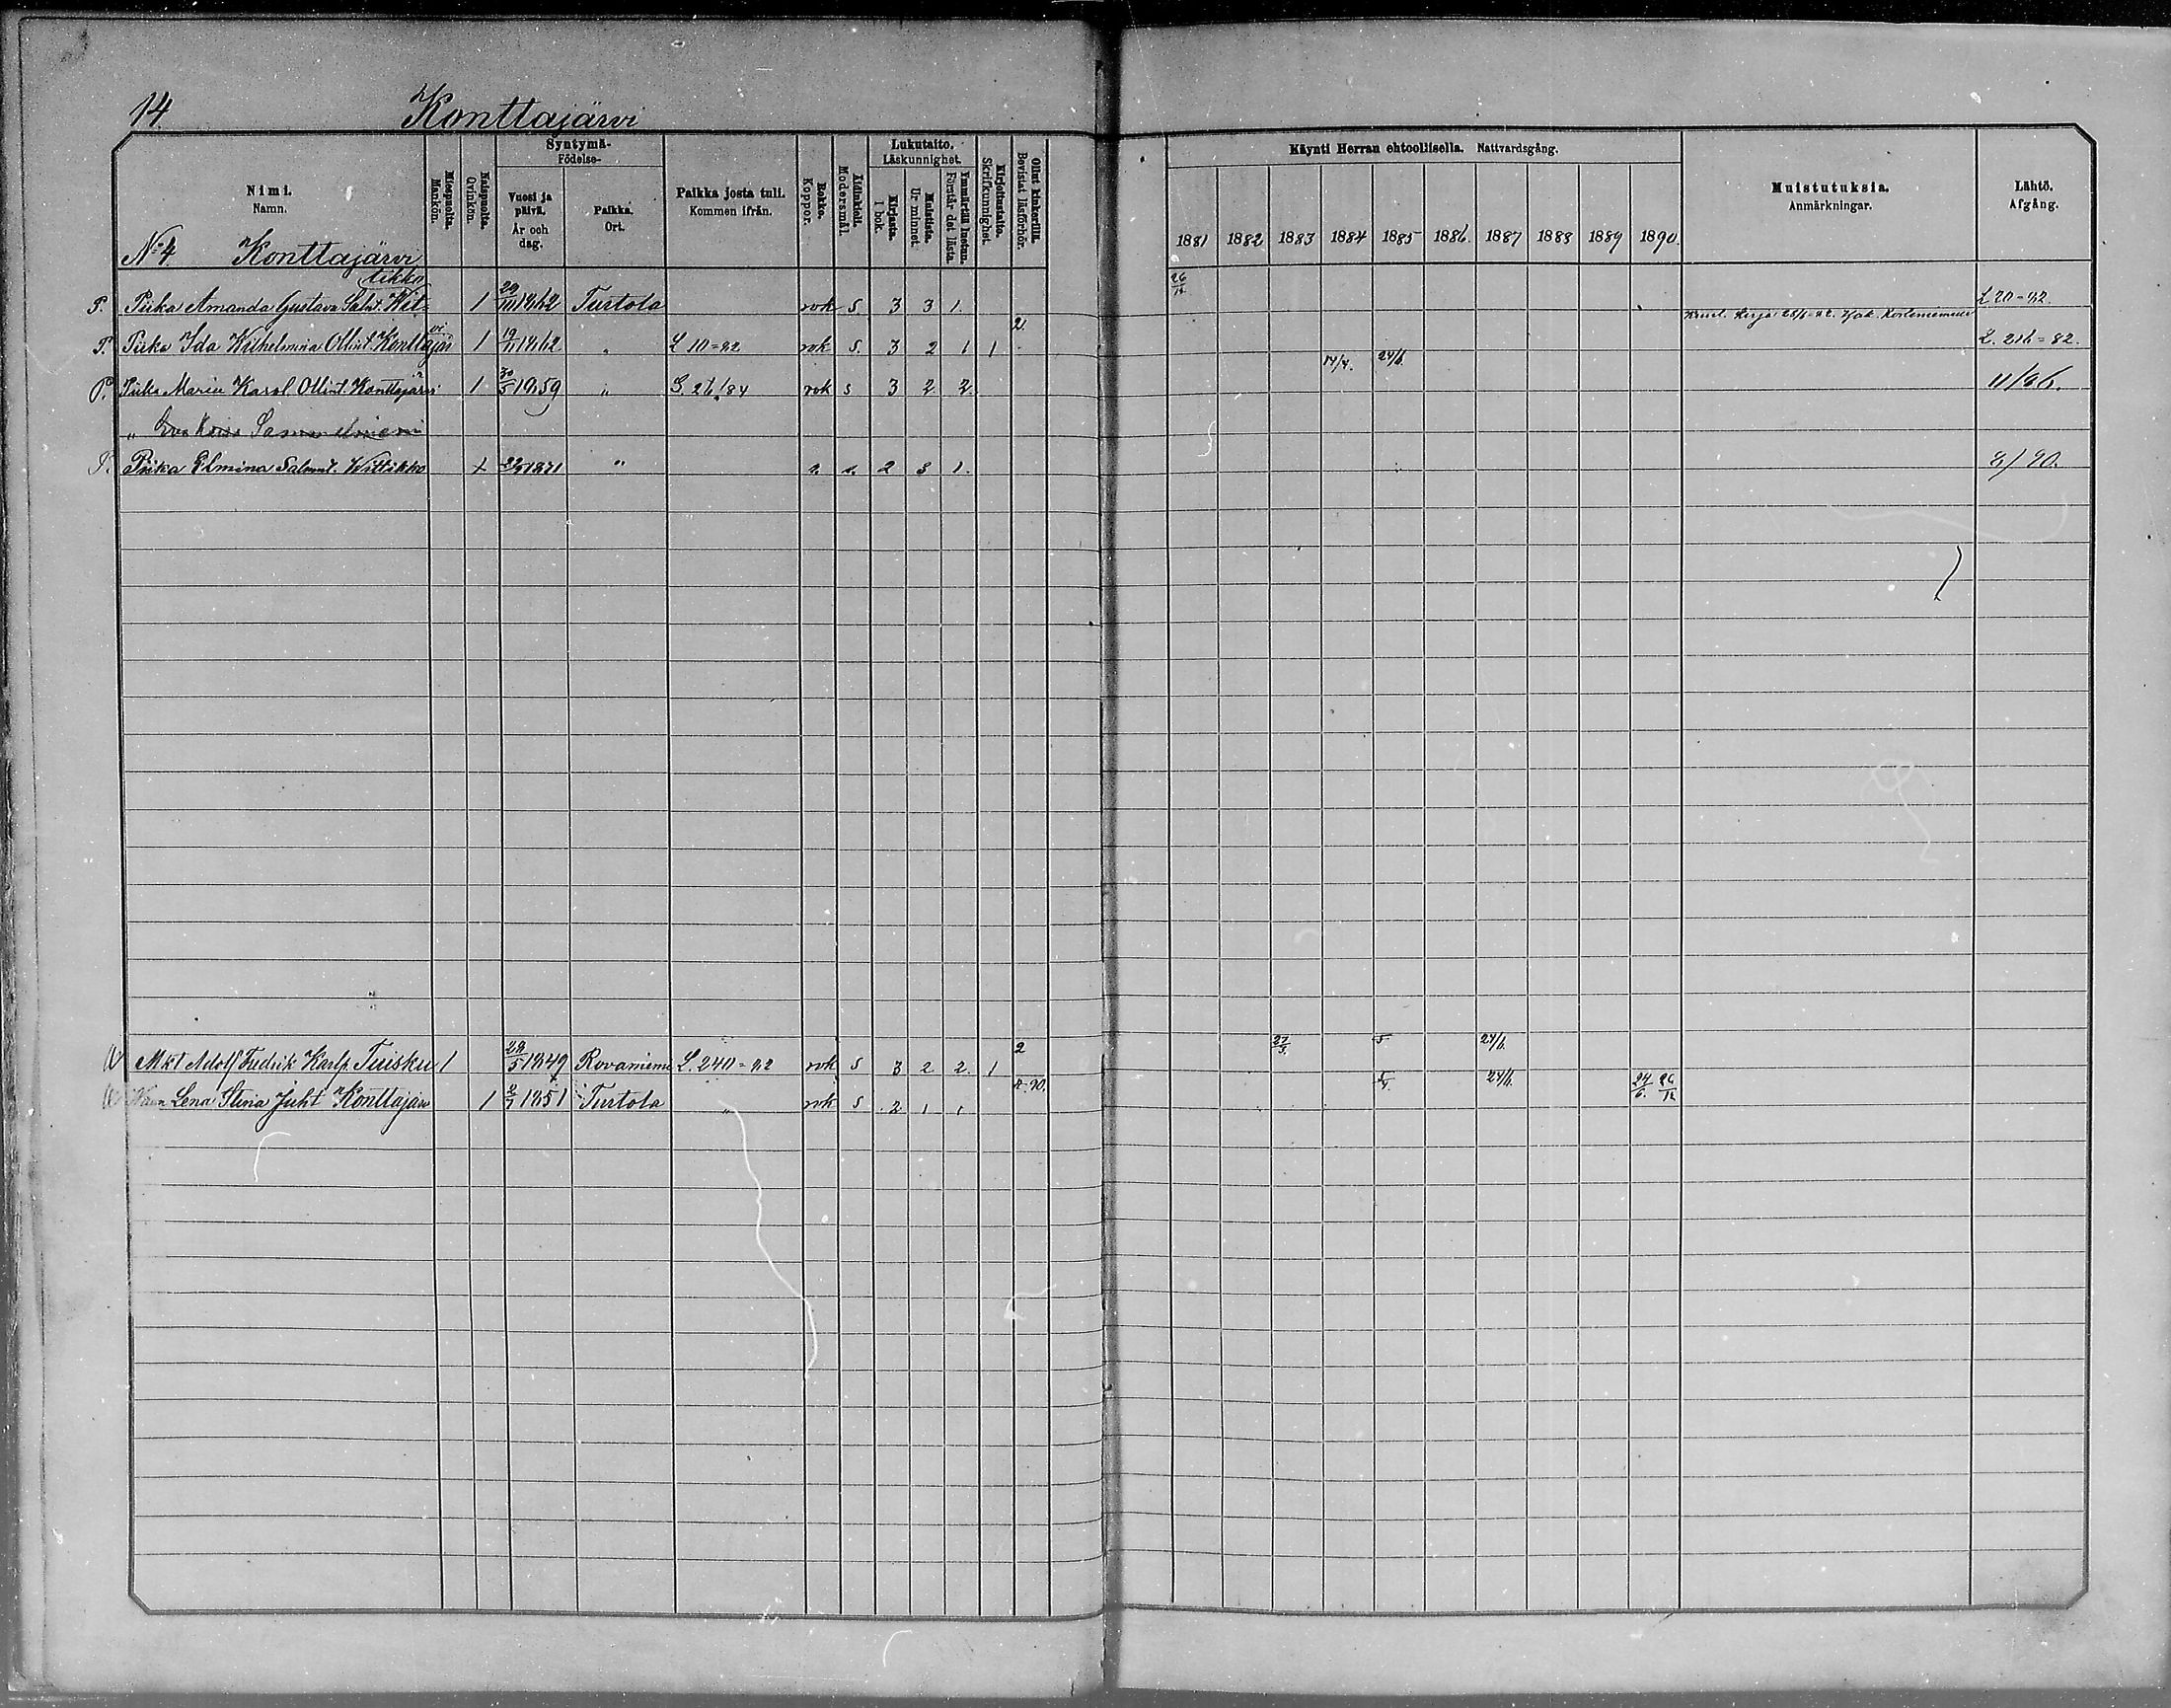 14. Konttajärvi
Nimi. Namn.
Miespuolta. Mankön.
Naispuolta. Qvinkön.
Syntymä- Födelse-
Vuosi ja päivä. År och dag.
Paikka. Ort.
Paikka josta tuli. Kommen ifrån.
Rokko. Koppor.
Äidinkieli. Modersmål.
Lukutaito. Läskunnighet.
Kirjasta. I bok.
Muistista. Ur minnet.
Ymmärtää luetun. Förstår det lästa.
Kirjoitustaito. Skrifkunnighet.
Ollut kinkerillä. Bevistat läsförhör.
Käynti Herran ehtoollisella. Nattvardsgång.
1881 1882 1883 1884 1885 1886 1887 1888 1889 1890
Muistutuksia. Anmärkningar.
Lähtö. Afgång.
No 4. Konttajärvi
P. Piika Amanda Gustava Salot. Wittikko 1 29/10 1862 Turtola rok s 3 3 1. 26/12 L 20=82
P. Piika Ida Wilhelmina Ollint. Konttajärvi 1 19/11 1862 " L 10=82 rok s. 3 2 1 1 2. L. 216=82.
P. Piika Maria Karol. Ollint. Konttajärvi 1 30/5 1859 " S. 26/84 rok s 3 2 2. 14/4. 24/6. 11/86.
" Sammelniemi
P. Piika Elmina Wittikko 1871 " r. s. 2 3 1. 8/90.
Mkt Adolf Fredrik Karlp. Tuisku 1 28/5 1849 Rovaniemi L. 240=82 rok s 3 2 2. 1 2 24/6.
Lena Stina Juht Konttajärv 1 2/7 1851 Turtola " rok s 2 1 1 90. 24/6. 24/6. 26/12